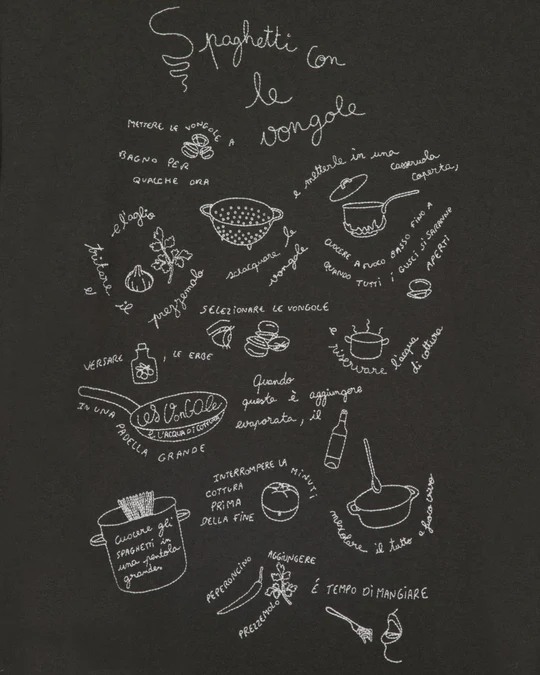 Spaghetti con
le
vongole
METTERE LE VONGOLE A
BAGNO PER
QUALCHE ORA
sciacquare le
vongole
e metterle in una
casseruola
coperta,
CUOCERE A FUOCO BASSO FINO A
QUANDO TUTTI I GUSCI SI SARANNO
APERTI
tritare
e l'aglio
e il
prezzemolo
SELEZIONARE LE VONGOLE
e riservare l'acqua
di cottura
VERSARE , LE ERBE
LE VONGOLE
E L'ACQUA DI COTTURA
IN UNA PADELLA GRANDE
Quando
questa è aggiungere
evaporata, il
Cuocere gli
SPAGHETTI in
una pentola
grande
INTERROMPERE LA
COTTURA MINUTI
PRIMA
DELLA FINE
mescolare il tutto a fuoco vivo
PEPERONCINO
AGGIUNGERE
PREZZEMOLO
É TEMPO DI MANGIARE